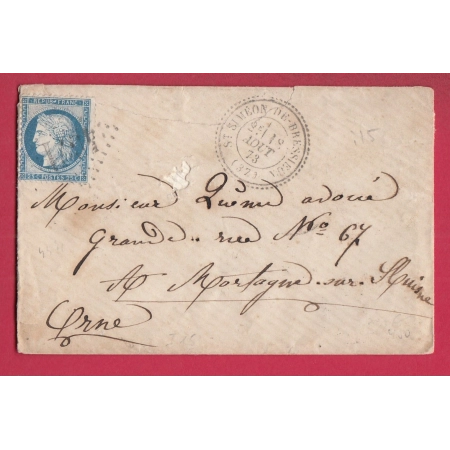 REPUB·FRANC·
25 C·POSTES·25 C·
ST SIMEON-DE-BRESSIEUX
18
AOUT
73
(37)
115
Monsieur Quême adoué
Grande-rue No 67
A Mortagne-sur-Huisne
Orne